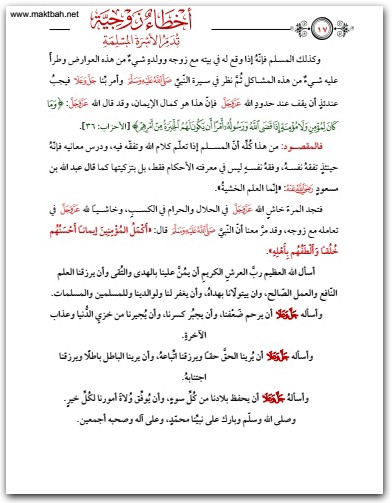 www.maktbah.net
أخطاء زوجية
تدمر الأسرة المسلمة
١٧
وكذلك المسلم فإنَّهُ إذا وقع له في بيته مع زوجه وولدهِ شيءٌ من هذه العوارض وطرأ
عليه شيءٌ من هذه المشاكل ثُمَّ نظر في سيرة النَّبيِّ صَلَّى اللَّهُ عَلَيْهِ وَسَلَّمَ وأمر ربُّنا جَلَّ وَعَلَا فيجبُ
عندئذٍ أن يقف عند حدودِ الله عَزَّ وَجَلَّ فإنَّ هذا هو كمال الإيمان، وقد قال الله عَزَّ وَجَلَّ: ﴿وَمَا
كَانَ لِمُؤْمِنٍ وَلَا مُؤْمِنَةٍ إِذَا قَضَى اللَّهُ وَرَسُولُهُ أَمْرًا أَن يَكُونَ لَهُمُ الْخِيَرَةُ مِنْ أَمْرِهِمْ﴾ [الأحزاب: ٣٦].
فالمقصود: من هذا كُلِّه أنَّ المسلم إذا تعلّم كلام الله وتفقّه فيه، ودرس معانيه فإنَّهُ
حينئذٍ تفقهُ نفسهُ، وفقهُ نفسهِ ليس في معرفته الأحكام فقط، بل بتزكيتها كما قال عبد الله بن
مسعودٍ رَضِيَ اللَّهُ عَنْهُ: «إنَّما العلم الخشيةُ».
فتجد المرءَ خاشٍ لله عَزَّ وَجَلَّ في الحلال والحرام في الكسبِ، وخاشيًا لله عَزَّ وَجَلَّ في
تعامله مع زوجه، وقد مرَّ معنا أنَّ النَّبيَّ صَلَّى اللَّهُ عَلَيْهِ وَسَلَّمَ قال: «أَكْمَلُ المُؤْمِنِينَ إِيمانًا أَحْسَنُهُم
خُلُقًا وَأَلْطَفُهُم بِأَهْلِهِ».
أسأل الله العظيم ربَّ العرشِ الكريمِ أن يمُنَّ علينا بالهدى والتُّقى وأن يرزقنا العلم
النَّافع والعمل الصَّالح، وأن يتولّانا بهداهُ، وأن يغفر لنا ولوالدينا وللمسلمين والمسلمات.
وأسأله جَلَّ وَعَلَا أن يرحم ضَعْفنا، وأن يجبُر كسرنا، وأن يُجيرنا من خزي الدُّنيا وعذاب
الآخرةِ.
وأسأله جَلَّ وَعَلَا أن يُرينا الحقَّ حقًا ويرزقنا اتِّباعهُ، وأن يرينا الباطل باطلًا ويرزقنا
اجتنابهُ.
وأسألهُ جَلَّ وَعَلَا أن يحفظ بلادنا من كُلِّ سوءٍ، وأن يُوفِّق وُلاةَ أمورنا لكُلِّ خيرٍ.
وصلى الله وسلّم وبارك على نبيِّنا محمّدٍ، وعلى آله وصحبه أجمعين.